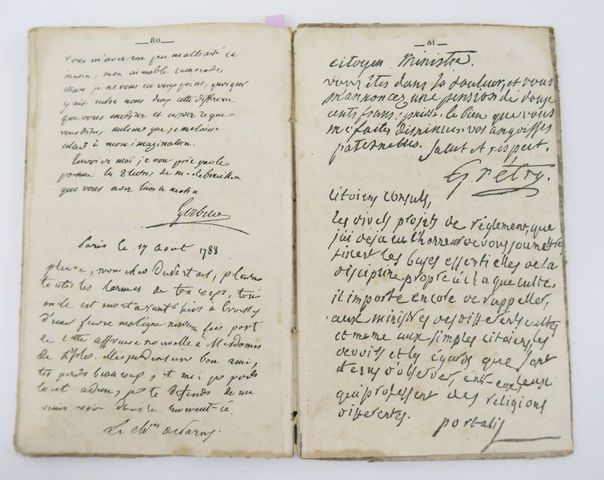 — 80 —
vous m'avez un peu maltraité ce
matin, mon aimable camarade
mais je ne vous en veux point, quoiqu'il
y ait entre nous deux cette différence
que vous mettez et
vous dites autant que je me laisse
aller à mon imagination.
Envoiez moi je vous prie par le
porteur la lettre de m. de
que vous avez lue ce matin
Paris le 17 aout 1788
pleure, mon cher Dubertail; pleure
toutes les larmes de ton corps, ton
oncle est mort avant hier à
d'une fievre maligne. mon fais part
de cette affreuse nouvelle à Mesdames
de L'Isle. Mes pauvres bon ami,
tu perds beaucoup, et moi je perds
tout adieu, je te defends de me
venir voir dans le moment-ci.
Le
— 81 —
citoyen Ministre.
vous êtes dans la douleur, et vous
m'annoncez une pension de douze
cents francs. puisse le bien que vous
me faites diminuer vos angoisses
paternelles. Salut et respect.
Grétry.
Citoiens Consuls,
les divers projets de règlement, que
j'ai déjà eu l'honneur de vous soumettre
fixent les bases essentielles de la
discipline propre à chaque culte.
il importe encore de rappeller,
aux ministres des differents cultes
et meme aux simples citoiens, les
devoirs et les égards que sont
tenus d'observer, entr'eux ceux
qui professent des religions
differentes.
portalis